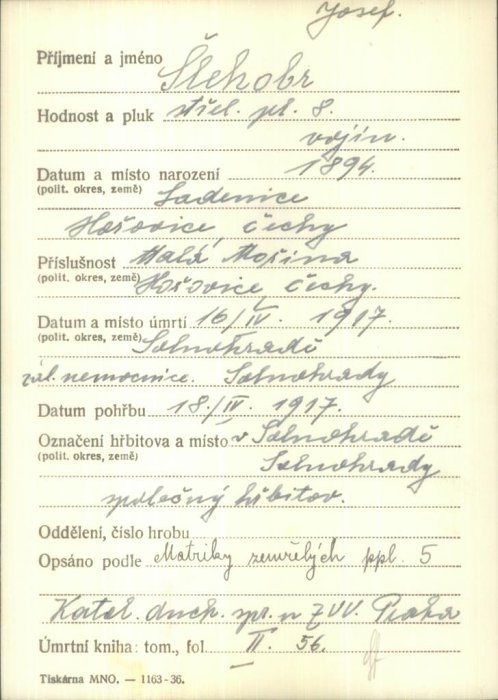 Josef.
Příjmení a jméno Šlehobr
Hodnost a pluk střel. pl. 8.
vojín.
Datum a místo narození 1894.
(polit. okres, země) Ladenice
Hořovice, čechy
Příslušnost Malá Mořina
(polit. okres, země) Hořovice, čechy.
Datum a místo úmrtí 16/IV. 1917.
(polit. okres, země) Solnohradě
zál. nemocnice. Solnohrady
Datum pohřbu 18./IV. 1917.
Označení hřbitova a místo v Solnohradě
(polit. okres, země) Solnohrady
společný hřbitov.
Oddělení, číslo hrobu
Opsáno podle Matriky zemřelých ppl. 5
Katol. duch. spr. u ZVV. Praha
Úmrtní kniha: tom., fol II. 56.
Tiskárna MNO. — 1163-36.